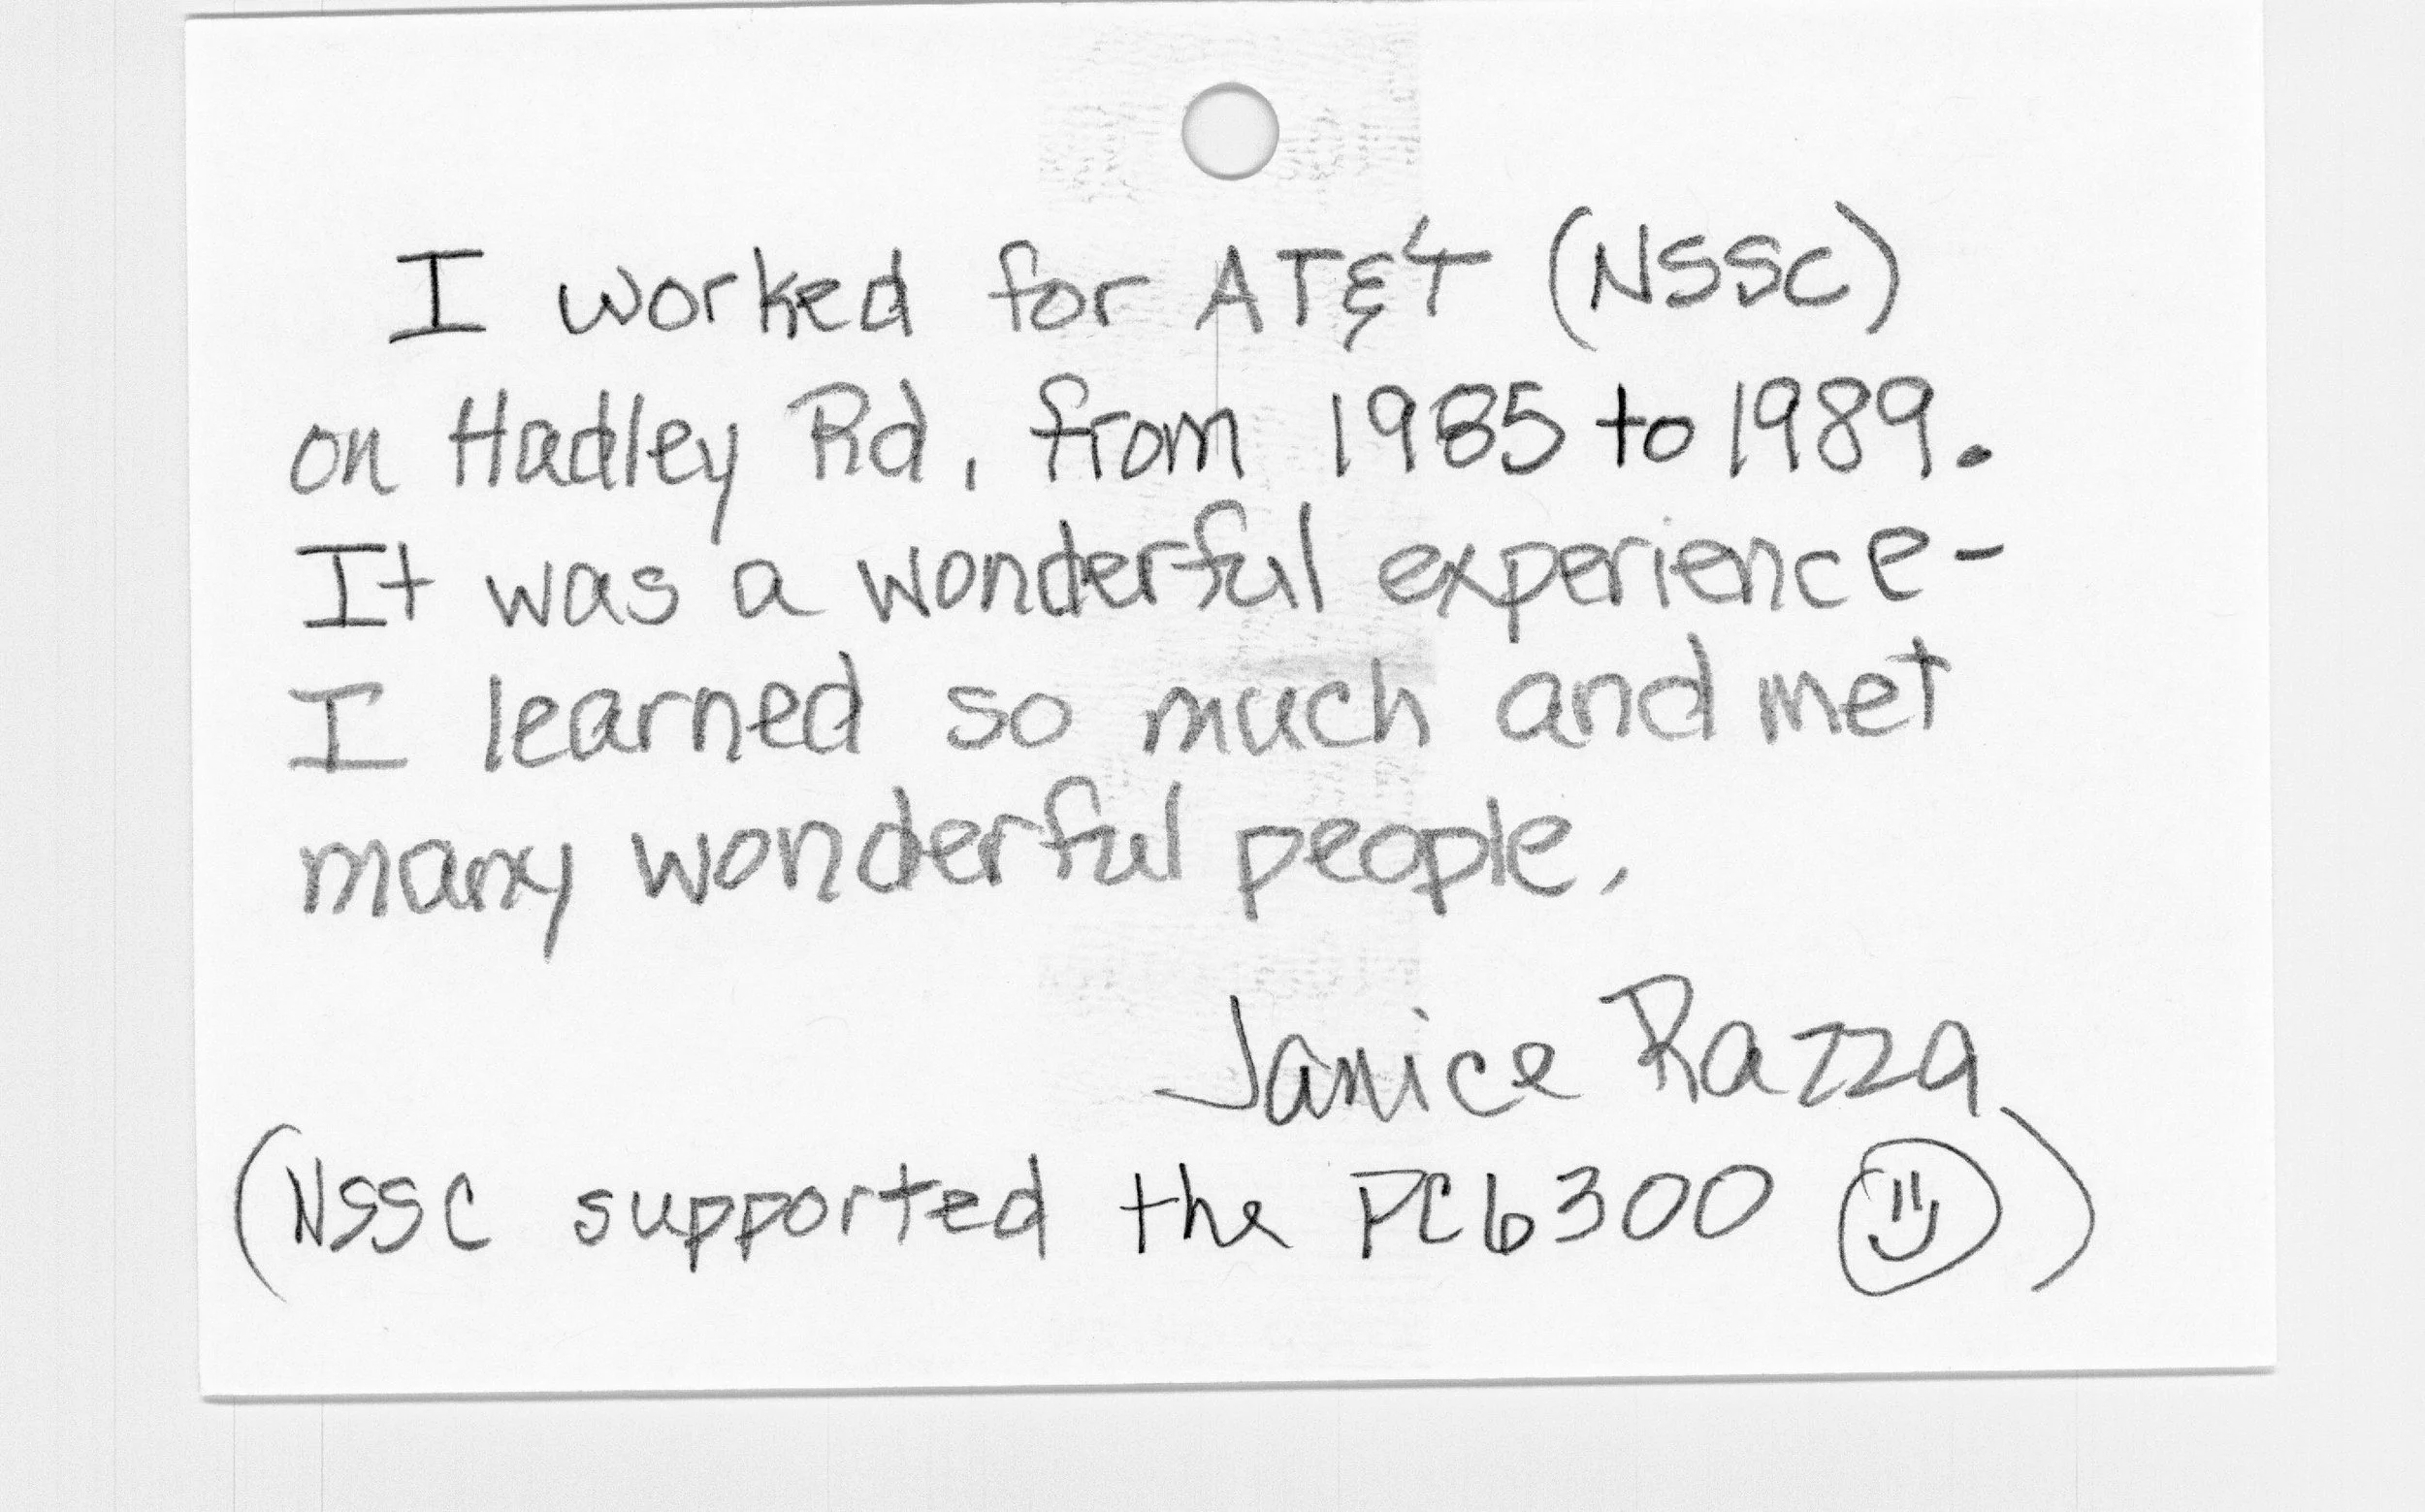 I worked for AT&T (NSSC)
on Hadley Rd, from 1985 to 1989.
It was a wonderful experience-
I learned so much and met
many wonderful people.
Janice Razza
(NSSC supported the PC6300 )